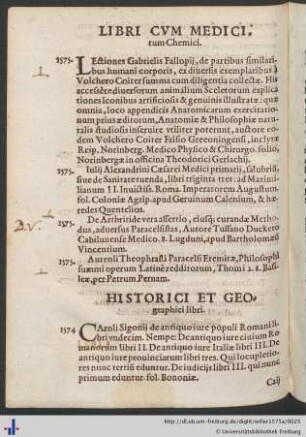 LIBRI CVM MEDICI,
tum Chemici.
1575. LEctiones Gabrielis Fallopij, de partibus similari-
bus humani corporis, ex diuersis exemplaribus à
Volchero Coiter summa cum diligentia collectæ. His
accessere diuersorum animalium Sceletorum explica
tiones Iconibus artificiosis & genuinis illustratæ: quæ
omnia, loco appendicis Anatomicarum exercitatio-
num prius æditorum, Anatomiæ & Philosophiæ natu-
ralis studiosis inseruire vtiliter poterunt, auctore eo-
dem Volchero Coiter Frisio Greeoningensi, inclytæ
Reip. Norinberg. Medico Physico & Chirurgo. folio,
Norinbergæ in officina Theodorici Gerlachij.
1575. Iulij Alexandrini Cæsarei Medici primarij, salubriū,
siue de Sanitate tuenda, libri triginta tres: ad Maximi-
lianum II. Inuictiss. Roma. Imperatorem Augustum.
fol. Coloniæ Agrip. apud Geruinum Calenium, & hæ-
redes Quentelios.
1575. De Arthritide vera assertio, eiusq; curandæ Metho-
dus, aduersus Paracelsistas, Autore Tussano Ducketo
Cabilunense Medico. 8. Lugduni, apud Bartholomæū
Vincentium.
1575. Aureoli Theophrasti Paracelsi Eremitæ, Philosophi
summi operum Latinè redditorum, Thomi 2. 8. Basi-
leæ, per Petrum Pernam.
HISTORICI ET GEO-
graphici libri.
1574 CAroli Sigonij de antiquo iure populi Romani li-
bri vndecim. Nempe: De antiquo iure ciuium Ro
manorum libri II. De antiquo iure Italiæ libri III. De
antiquo iure prouinciarum libri tres. Qui locupletio-
res nunc tertiū eduntur. De iudicijs libri III. qui nunc
primum eduntur. fol. Bononiæ.
Caij
http://dl.ub.uni-freiburg.de/diglit/weller1575a/0025
© Universitätsbibliothek Freiburg